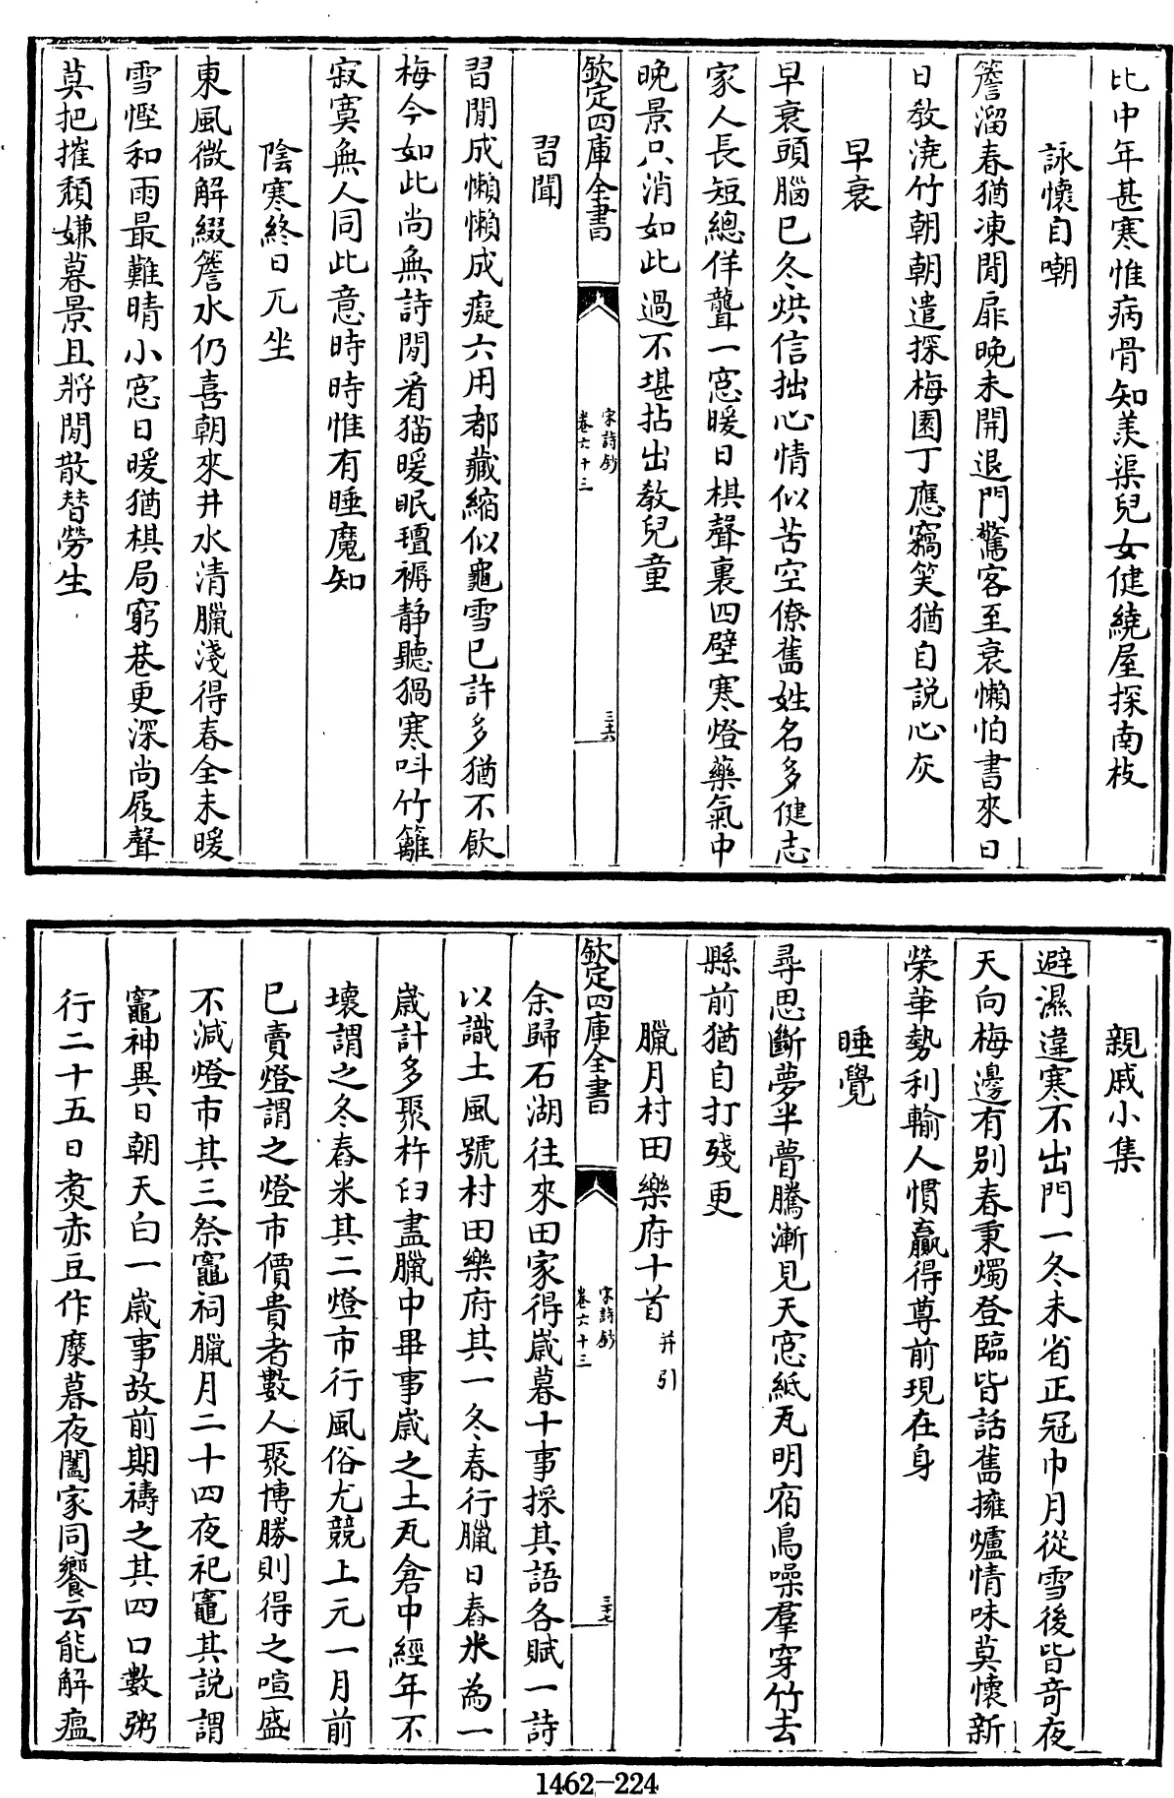 比中年甚寒惟病骨知羨渠兒女健繞屋探南枝
詠懷自嘲
簷溜春猶凍閒扉晚未開退門驚客至衰懶怕書來日
日教澆竹朝朝遣探梅園丁應竊笑猶自説心灰
早衰
早衰頭腦已冬烘信拙心情似苦空僚舊姓名多健志
家人長短總佯聾一窓暖日棋聲裏四壁寒燈藥氣中
晚景只消如此過不堪拈出教兒童
欽定四庫全書
宋詩鈔
卷六十三
三十六
習閒
習閒成懶懶成癡六用都藏縮似龜雪已許多猶不飲
梅今如此尚無詩閒看猫暖眠氊褥静聽鴉寒呌竹籬
寂寞無人同此意時時惟有睡魔知
陰寒終日兀坐
東風微解綴簷水仍喜朝來井水清臘淺得春全未暖
雪慳和雨最難晴小窓日暖猶棋局窮巷更深尚屐聲
莫把摧頹嫌暮景且將閒散替勞生
親戚小集
避濕違寒不出門一冬未省正冠巾月從雪後皆奇夜
天向梅邊有别春秉燭登臨皆話舊擁爐情味莫懷新
榮華勢利輸人慣贏得尊前現在身
睡覺
尋思斷夢半瞢騰漸見天窓紙瓦明宿鳥噪羣穿竹去
縣前猶自打殘更
臘月村田樂府十首并引
欽定四庫全書
宋詩鈔
卷六十三
三十七
余歸石湖往來田家得歲暮十事採其語各賦一詩
以識土風號村田樂府其一冬舂行臘日舂米為一
歲計多聚杵臼盡臘中畢事歲之土瓦倉中經年不
壞謂之冬舂米其二燈市行風俗尤競上元一月前
已賣燈謂之燈市價貴者數人聚博勝則得之喧盛
不減燈市其三祭竈祠臘月二十四夜祀竈其説謂
竈神異日朝天白一歲事故前期禱之其四口數粥
行二十五日煮赤豆作糜暮夜闔家同饗云能解瘟
1462-224